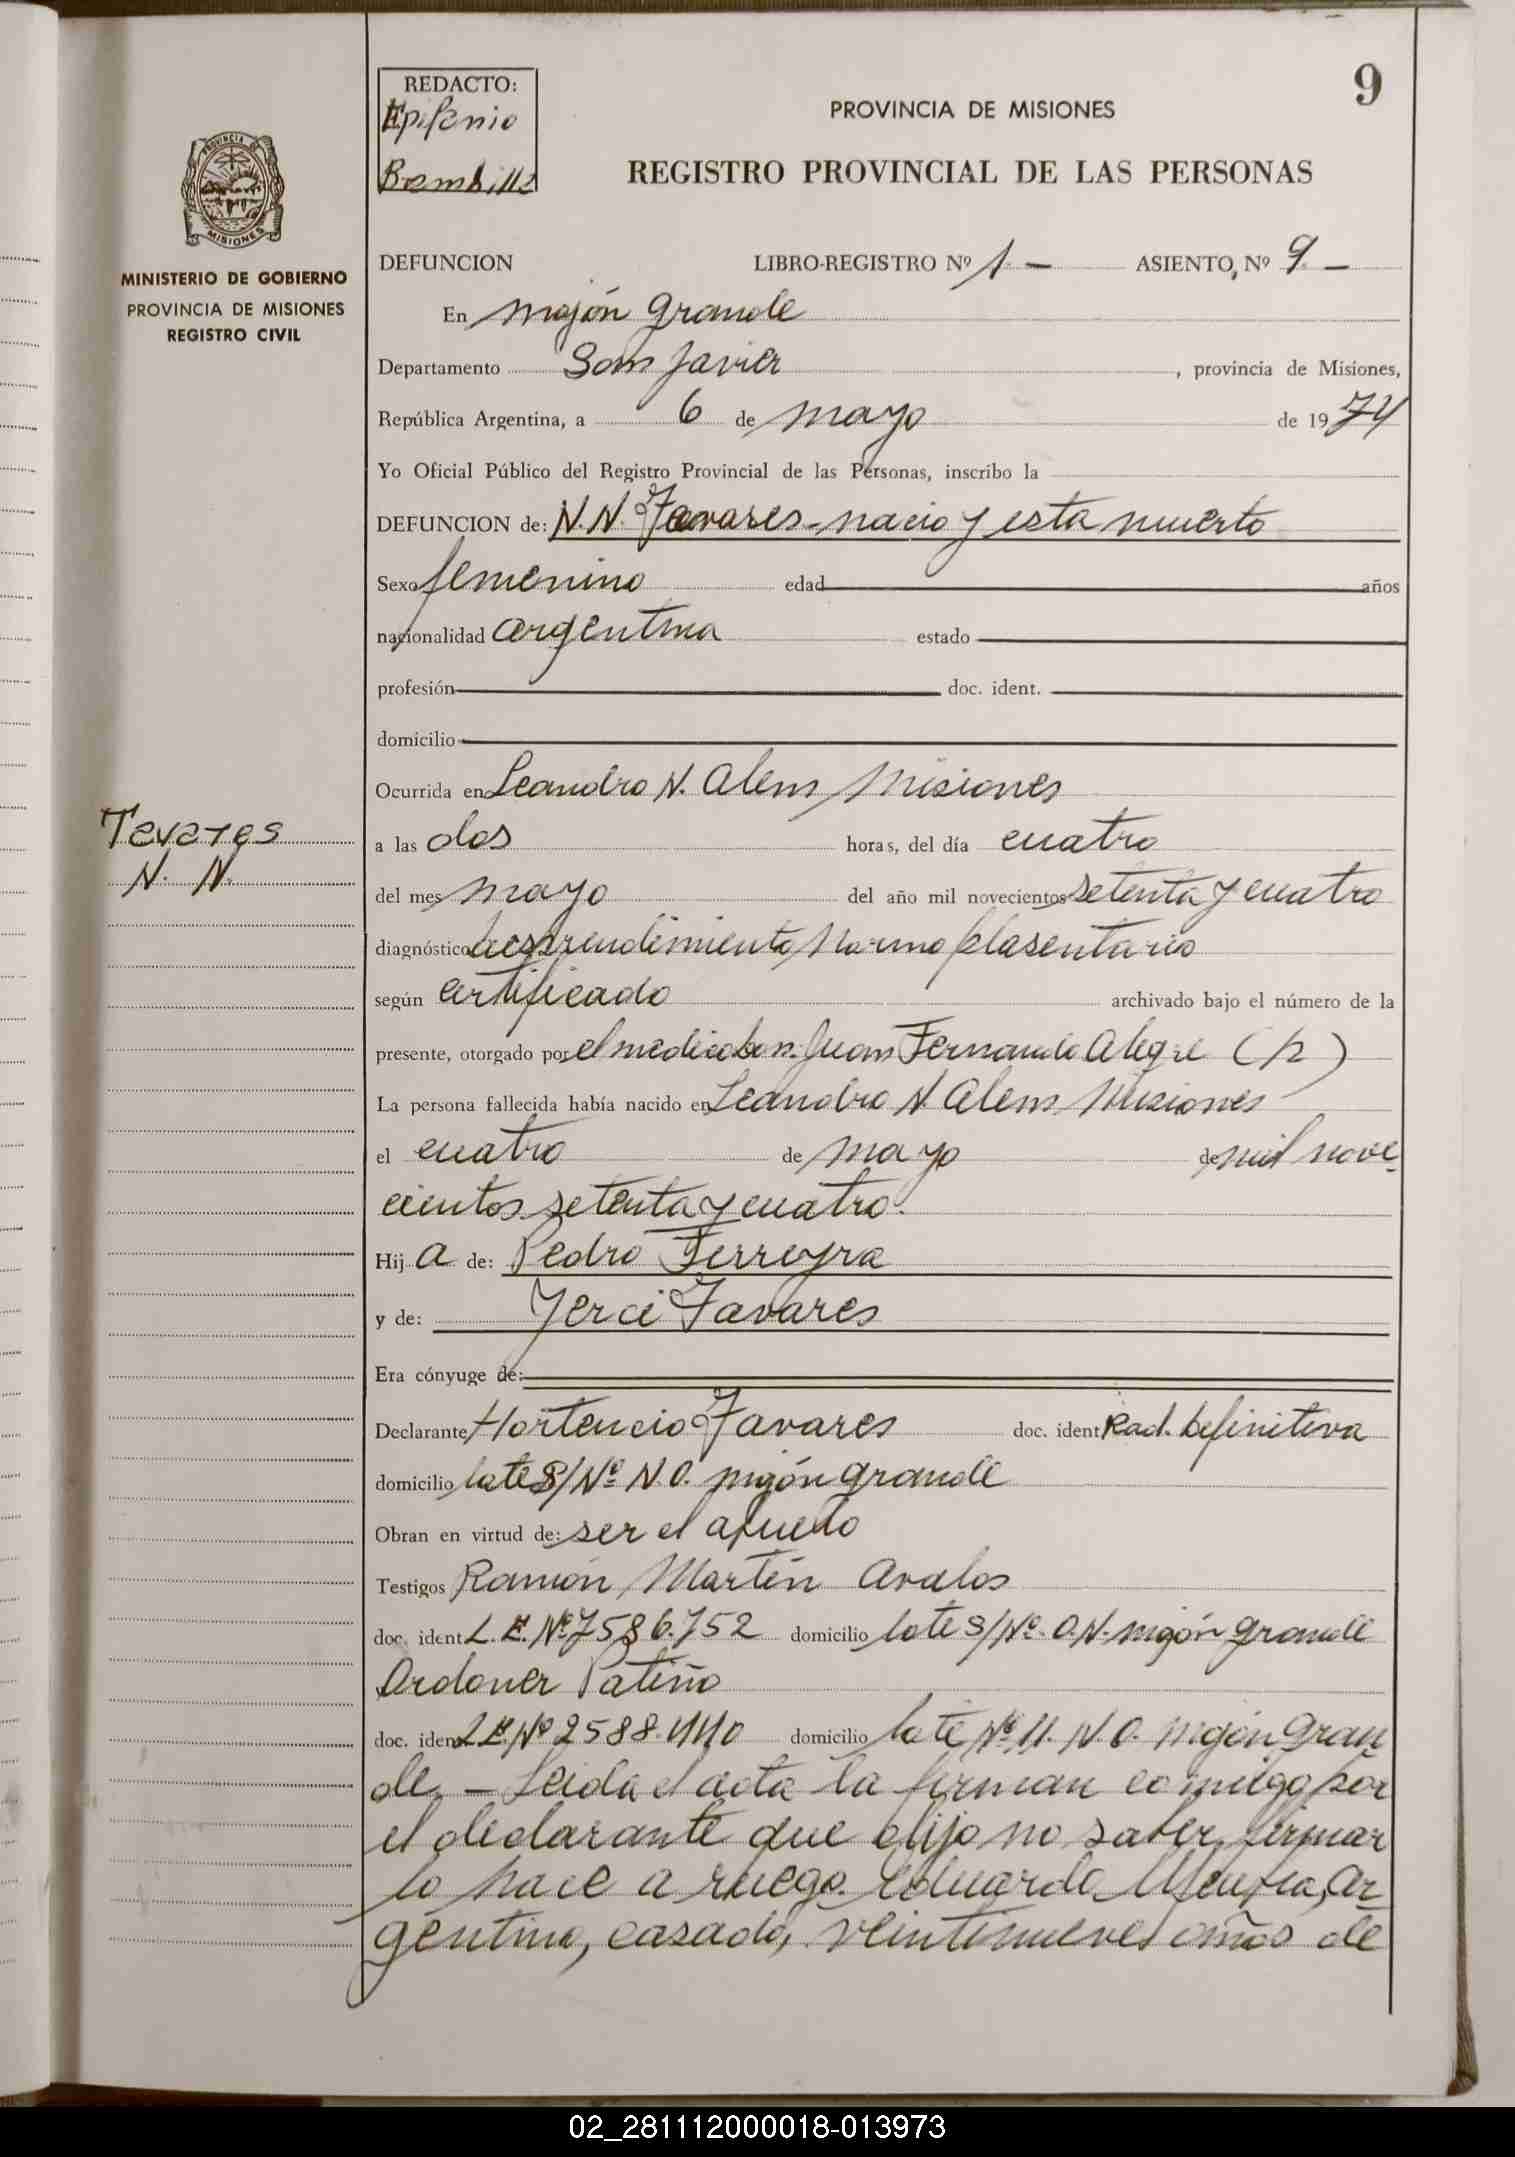 9
REDACTO:
Epifanio
PROVINCIA DE MISIONES
REGISTRO PROVINCIAL DE LAS PERSONAS
PROVINCIA DE
MISIONES
MINISTERIO DE GOBIERNO
PROVINCIA DE MISIONES
REGISTRO CIVIL
DEFUNCION LIBRO-REGISTRO Nº 1 — ASIENTO, Nº 9 —
En mojón grande
Departamento San Javier, provincia de Misiones,
República Argentina, a 6 de mayo de 1974
Yo Oficial Público del Registro Provincial de las Personas, inscribo la
DEFUNCION de: N.N. Tavares - nacio y esta muerto
Sexo femenino edad años
nacionalidad argentina estado
profesión doc. ident.
domicilio
Ocurrida en Leandro N. Alem Misiones
Tavares
N. N.
a las dos horas, del día cuatro
del mes mayo del año mil novecientos setenta y cuatro
diagnóstico desprendimiento plasentario
según certificado archivado bajo el número de la
presente, otorgado por el medico Don. Juan Fernando Alegre (h)
La persona fallecida había nacido en Leandro N. Alem Misiones
el cuatro de mayo de mil nove-
cientos setenta y cuatro.
Hij a de: Pedro Ferreyra
y de: Jerci Tavares
Era cónyuge de:
Declarante Hortencio Tavares doc. ident Rad. Definitiva
domicilio lote S/Nº N.O. mojón grande
Obran en virtud de: ser el abuelo
Testigos Ramón Martín Avalos
doc. ident L.E. Nº 7586.752 domicilio lote S/Nº. O.N. mojón grande
Ordoner Patiño
doc. ident L.E. Nº 2588. domicilio lote Nº 11. N.O. mojón gran
de. — Leida el acta la firman comigo por
el declarante que dijo no saber firmar
lo hace a ruego Eduardo ar
gentino, casado, veintinueve años de
02_281112000018-013973